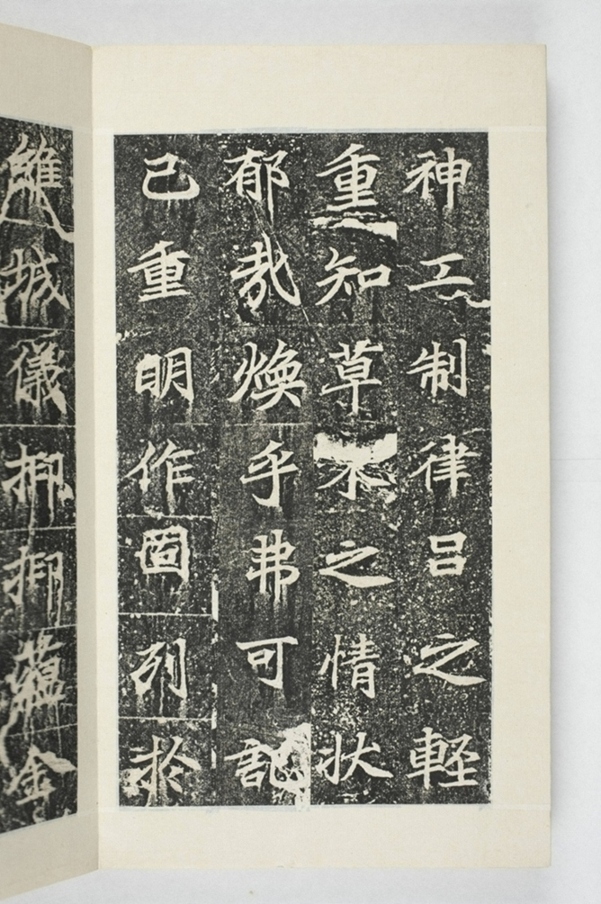 神工制律呂之輕
重知草木之情狀
郁哉煥乎弗可記
己重明作固列於
維城儀抑抑蘊金